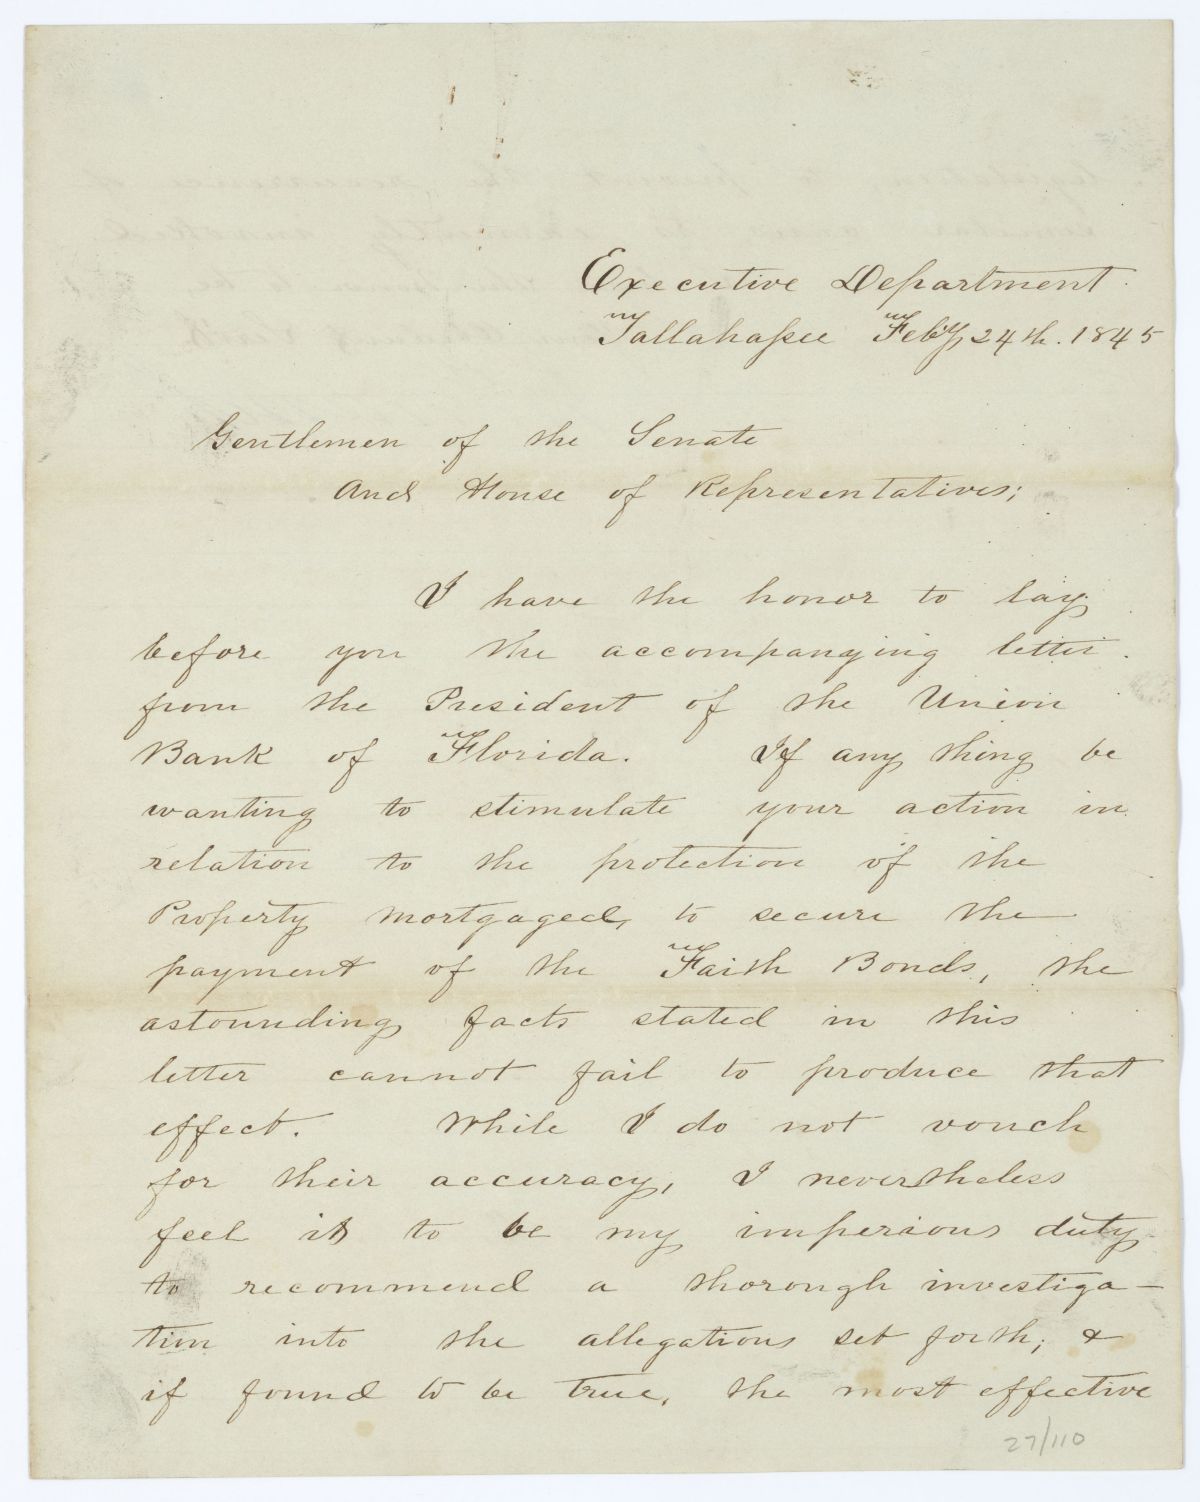 Executive Department.
Tallahassee Feby 24th. 1845
Gentlemen of the Senate
And House of Representatives;
I have the honor to lay
before you the accompanying letter.
from the President of the Union
Bank of Florida. If any thing be
wanting to stimulate your action in
relation to the protection of the
Property mortgaged, to secure the
payment of the Faith Bonds, the
astounding facts stated in this
letter cannot fail to produce that
effect. While I do not vouch
for their accuracy, I nevertheless
feel it to be my imperious duty
to recommend a thorough investiga-
tion into the allegations set forth; &
if found to be true, the most effective
27/110